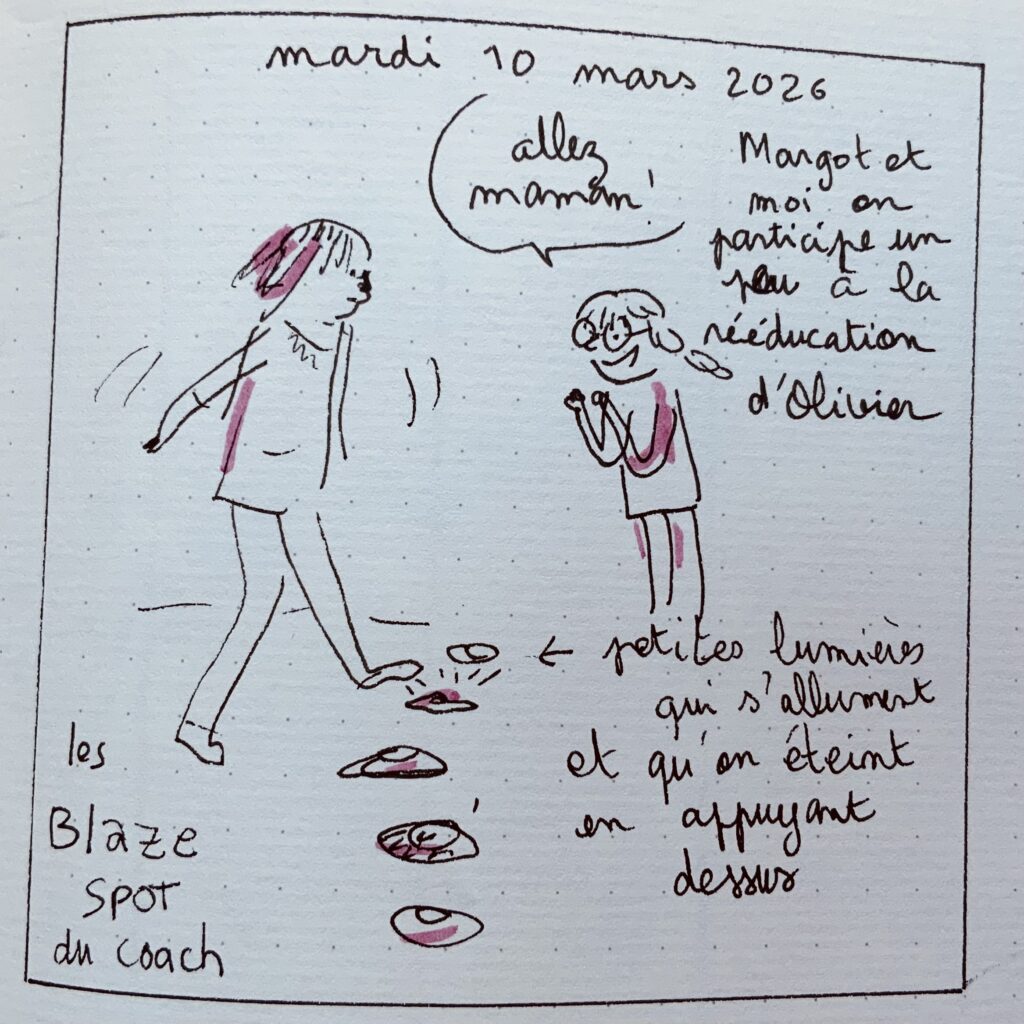 mardi 10 mars 2026
allez
maman !
Margot et
moi on
participe un
peu à la
rééducation
d'Olivier
← petites lumières
qui s'allument
et qu'on éteint
en appuyant
dessus
les
Blaze
SPOT
du coach